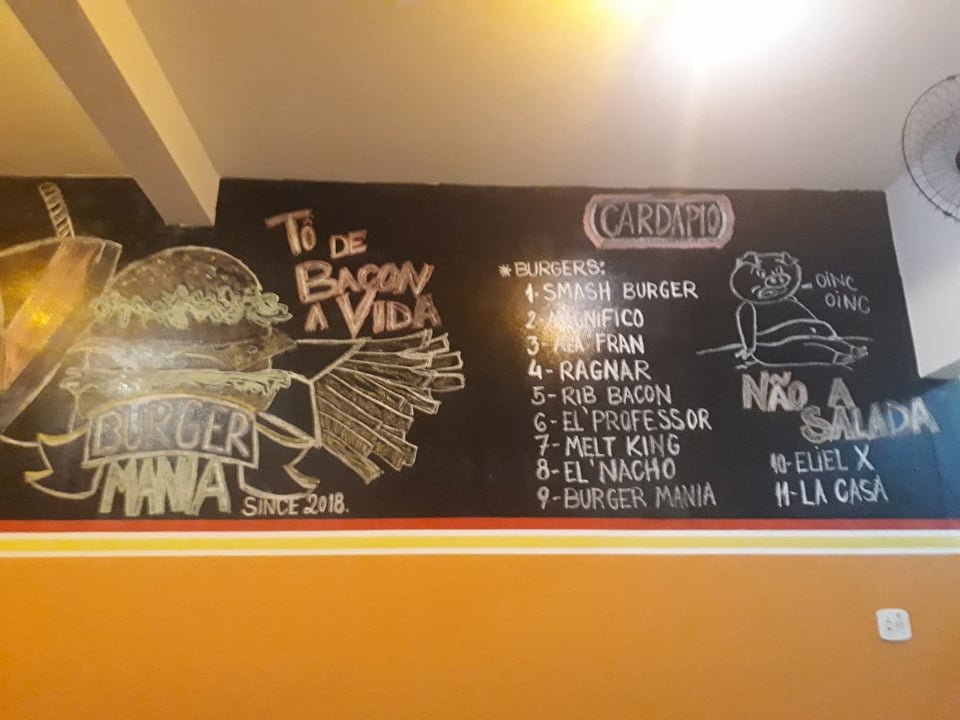 TÔ DE
BACON
A VIDA
BURGER
MANIA
SINCE 2018.
CARDÁPIO
* BURGERS:
1- SMASH BURGER
2- MAGNIFICO
3- FRAN
4- RAGNAR
5- RIB BACON
6- EL'PROFESSOR
7- MELT KING
8- EL'NACHO
9- BURGER MANIA
OINC
OINC
NÃO A
SALADA
10- ELIEL X
11- LA CASA